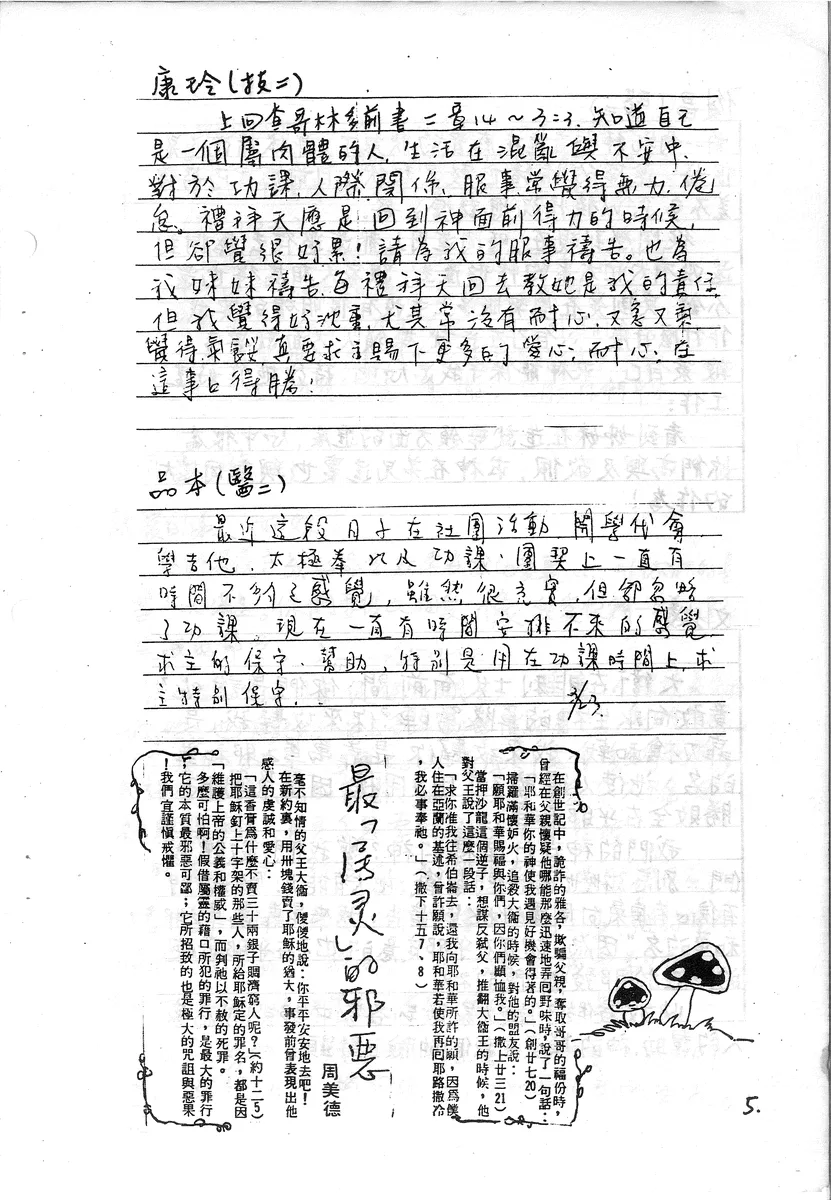 康玲(技二)
上回查哥林多前書二章14～3:3.知道自己
是一個屬肉體的人,生活在混亂與不安中.
對於功課、人際關係、服事常覺得無力、倦
怠。禮拜天應是回到神面前得力的時候,
但卻覺很好累!請為我的服事禱告。也為
我妹妹禱告,每禮拜天回去教她是我的責任
但我覺得好沈重,尤其常沒有耐心,又
覺得真要求主賜下更多的愛心、耐心,在
這事上得勝!
品本(醫二)
最近這段日子在社團活動、開學代會、
學吉他、太極拳以及功課、團契上一直有
時間不夠之感覺,雖然很充實,但卻忽略
了功課。現在一直有時間安排不來的感覺
求主的保守、幫助,特別是用在功課時間上,求
主特別保守. 3/23.
在創世記中,詭詐的雅各,欺騙父親,奪取哥哥的福份時,
曾經在父親懷疑他哪能那麼迅速地弄回野味時,說了一句話:
「耶和華你的神使我遇見好機會得著的。」(創廿七20)
掃羅滿懷妒火,追殺大衛的時候,對他的盟友說:
「願耶和華賜福與你們,因你們顧恤我。」(撒上廿三21)
當押沙龍這個逆子,想謀反弒父,推翻大衛王的時候,他
對父王說了這麼一段話:
「求你准我往希伯崙去,還我向耶和華所許的願,因為僕
人住在亞蘭的基述,曾許願說,耶和華若使我再回耶路撒冷
,我必事奉祂。」(撒下十五7、8)
最「屬灵」的邪惡
周美德
毫不知情的父王大衛,便傻地說:你平平安安地去吧!
在新約裏,用卅塊錢賣了耶穌的猶大,事發前曾表現出他
感人的虔誠和愛心:
「這香膏爲什麼不賣三十兩銀子賙濟窮人呢?」(約十二5)
把耶穌釘上十字架的那些人,所給耶穌定的罪名,都是因
「維護上帝的公義和權威」,而判祂以不赦的死罪。
多麼可怕啊!假借屬靈的藉口所犯的罪行,是最大的罪行
;它的本質最邪惡可鄙;它所招致的也是極大的咒詛與惡果
!我們宜謹愼戒懼。
5.